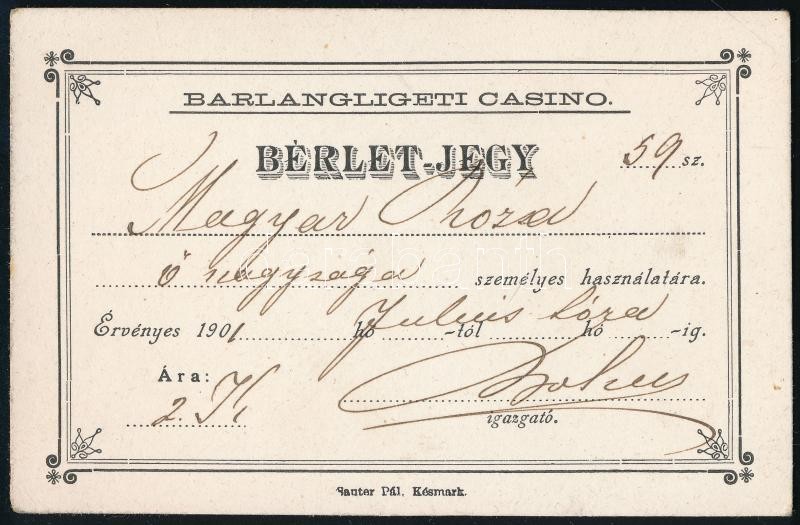 BARLANGLIGETI CASINO.
BÉRLET-JEGY 59 sz.
Magyar Róza
ő nagysága személyes használatára.
Érvényes 1901 hó -tól Julius hó -ig.
Ára:
2. K
igazgató.
Sauter Pál, Késmark.